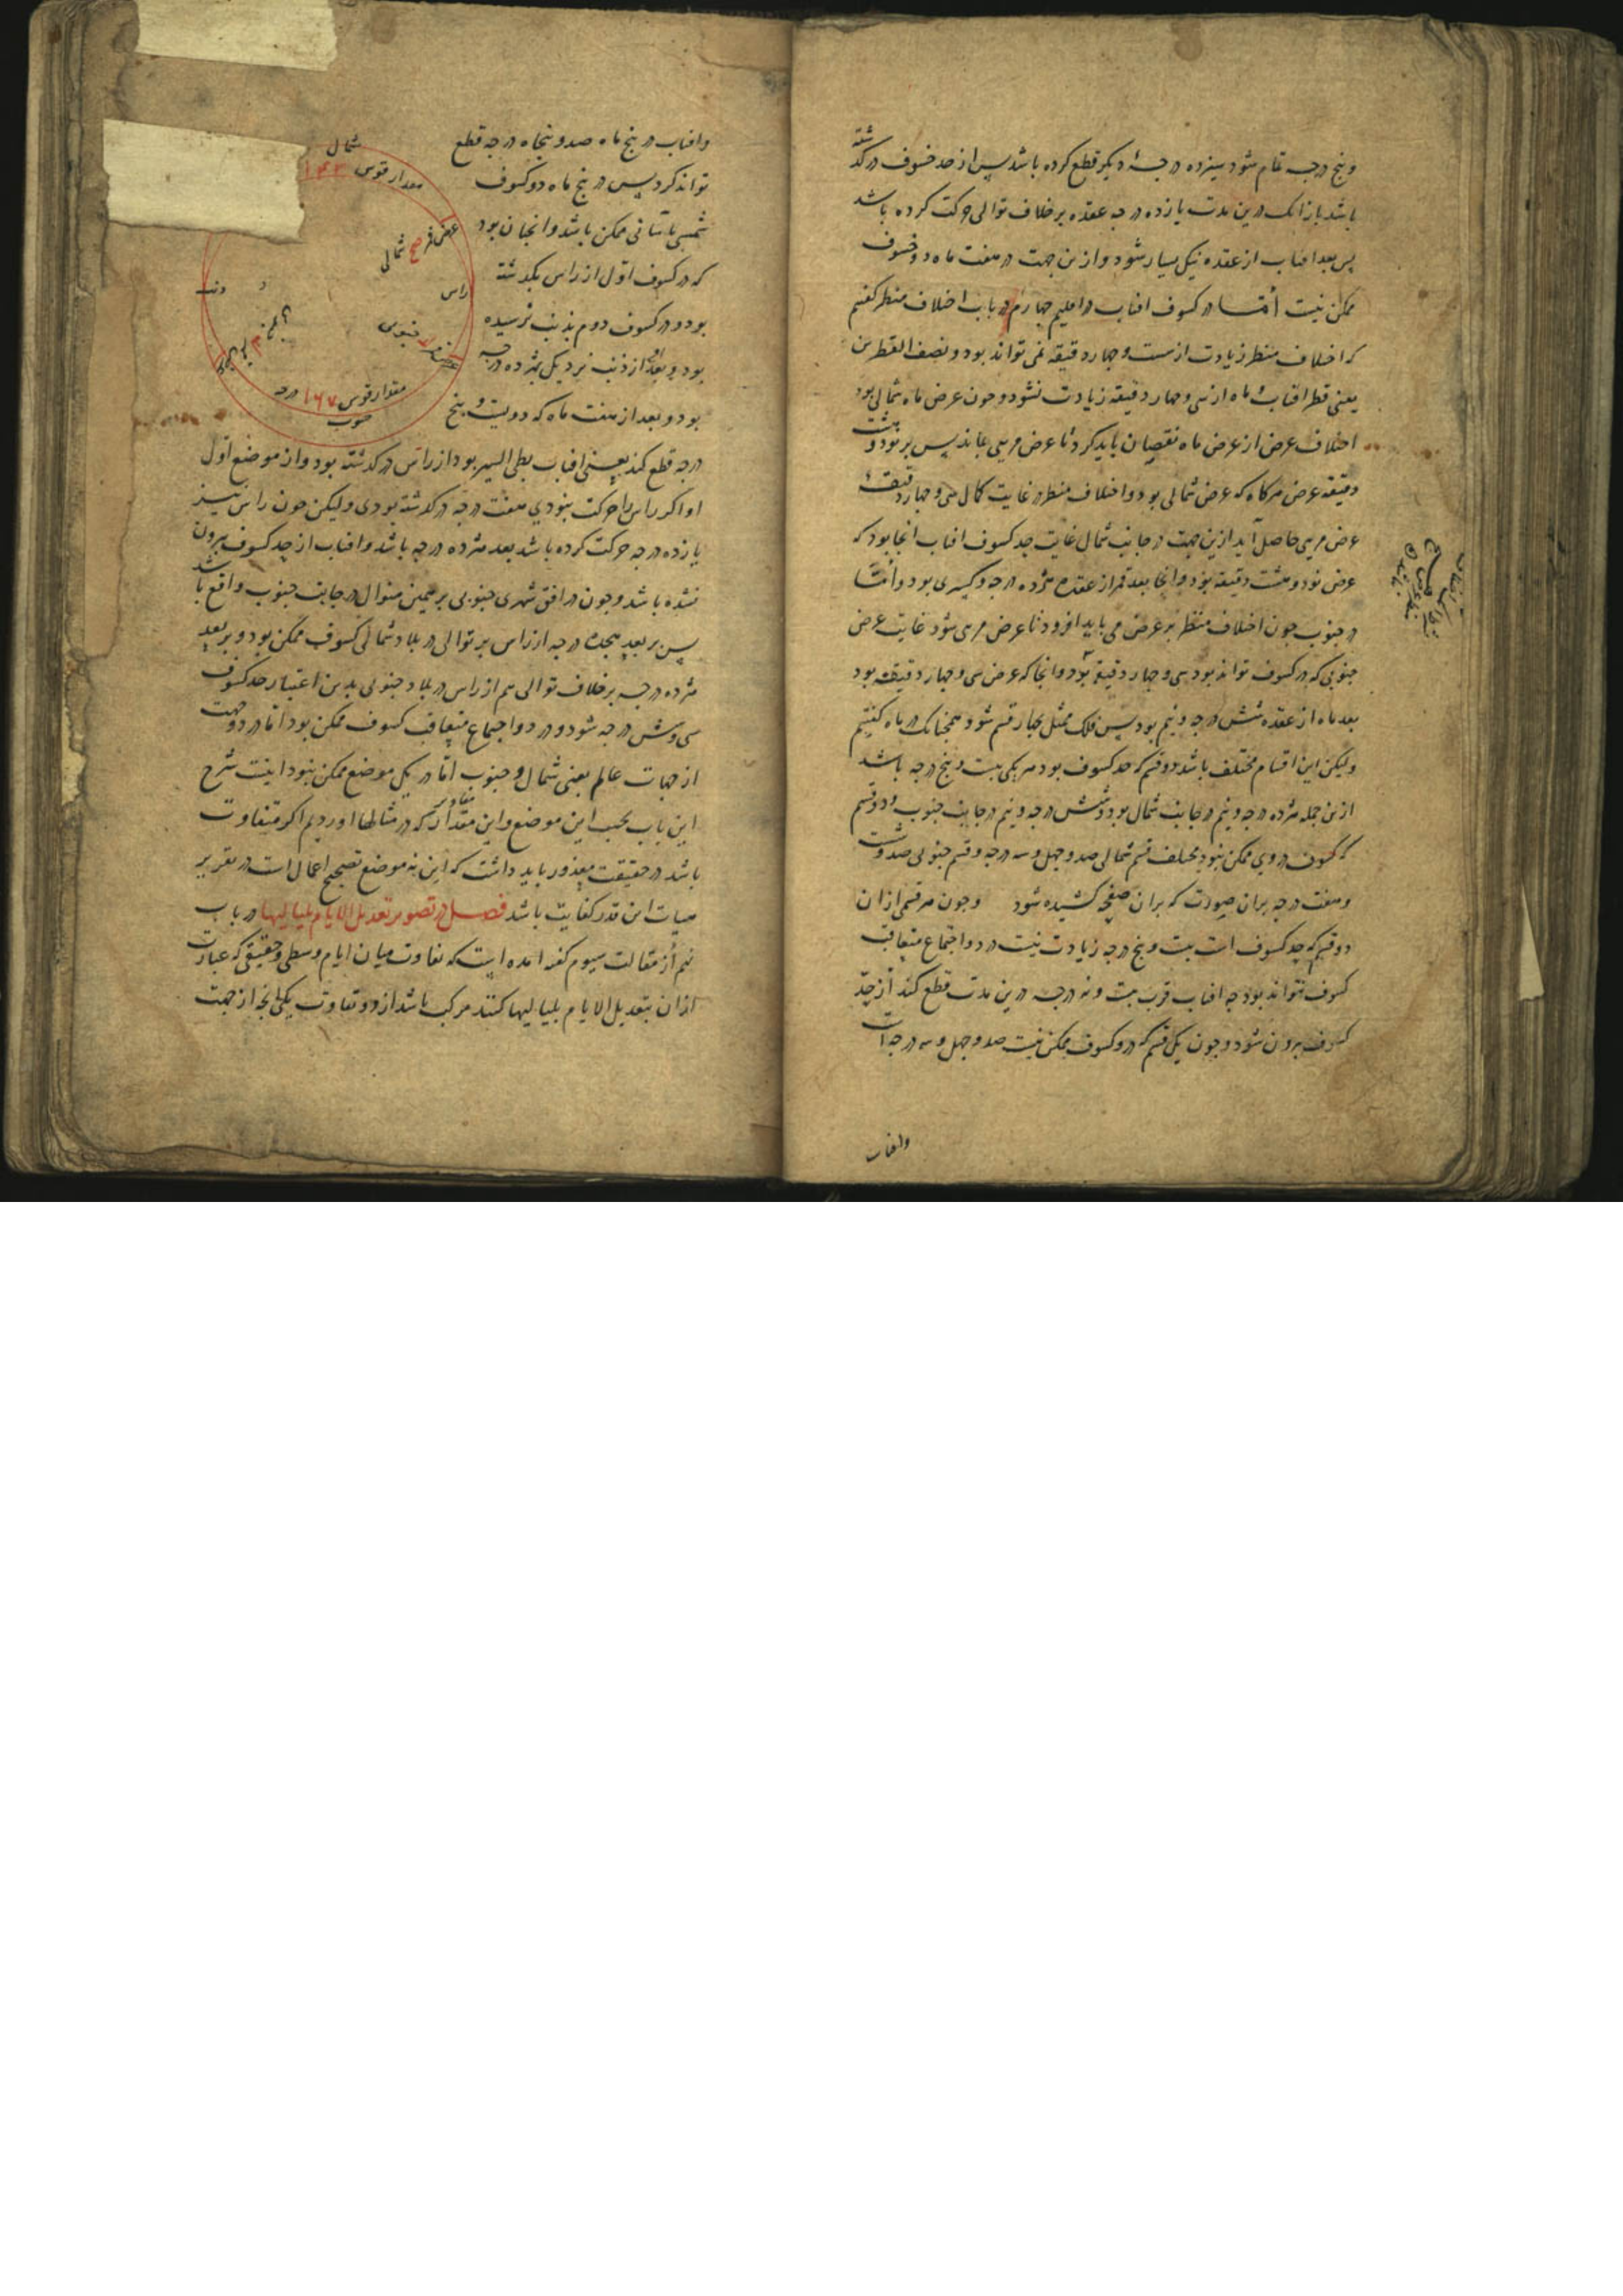 وپنج درجه تمام شود سیزده درجهٔ دیکر قطع کرده باشد پس از حد خسوف درکذشته
باشد باز انک درین مدت یازده درجه عقده برخلاف توالی حرکت کرده باشد
پس بعد افتاب از عقده نیک بسیار شود وازین جهت در هفت ماه دو خسوف
ممکن نیست امّا در کسوف افتاب در اقلیم چهارم در باب اختلاف منظر کفتیم
که اختلاف منظر زیادت از سی وچهار دقیقه نمی تواند بود ونصف القطرین
یعنی قطر افتاب و ماه از سی وچهار دقیقه زیادت نشود وچون عرض ماه شمالی بود
اختلاف عرض از عرض ماه نقصان باید کرد تا عرض مریی بماند پس بر نود وهشت
دقیقه عرض هرکاه که عرض شمالی بود واختلاف منظر در غایت کمال سی وچهار دقیقهٔ
عرض مریی حاصل آید ازین جهت در جانب شمال غایت حد کسوف افتاب انجا بود که
عرض نود وهشت دقیقه بود وانجا بعد قمر از عقده هژده درجه وکسری بود وامّا
در جنوب چون اختلاف منظر بر عرض می باید افزود تا عرض مریی شود غایت عرض
جنوبی که در کسوف تواند بود سی وچهار دقیقه بود وانجا که عرض سی وچهار دقیقه بود
بعد ماه از عقده شش درجه ونیم بود پس فلک ممثل بچهار قسم شود همچنانک در ماه کفتیم
ولیکن این اقسام مختلف باشد دو قسم که حد کسوف بود هر یکی بیست وپنج درجه باشد
ازین جمله هژده درجه ونیم در جانب شمال بود وشش درجه ونیم در جانب جنوب ودو قسم
که کسوف در وی ممکن نبود مختلف قسم شمالی صد وچهل وسه درجه وقسم جنوبی صد وشست
وهفت درجه بران صورت که بران صفحه کشیده شود وچون هر قسمی ازان
دو قسم که حد کسوف است بیست وپنج درجه زیادت نیست در دو اجتماع متعاقب
کسوف نتواند بود چه افتاب قرب بیست ونه درجه درین مدت قطع کند از حدّ
کسوف بیرون شود وچون یک قسم که درو کسوف ممکن نیست صد وچهل وسه درجه است
وافتاب
وافتاب در پنج ماه صد وپنجاه درجه قطع
تواند کرد پس در پنج ماه دو کسوف
شمسی باسانی ممکن باشد وانچنان بود
که در کسوف اوّل از راس بکذشته
بود ودر کسوف دوم بذنب نرسیده
بود وبعد از ذنب نزدیک هژده درجه
بود وبعد از هفت ماه که دویست و پنج
درجه قطع کند یعنی افتاب بطی السیر بود از راس درکذشته بود وان موضع اوّل
او اکر راس را حرکت نبودی هفت درجه درکذشته بودی ولیکن چون راس نیز
یازده درجه حرکت کرده باشد بعد هژده درجه باشد وافتاب از حد کسوف بیرون
نشده باشد وچون در افق شهری جنوبی بر همین منوال در جانب جنوب واقع باشد
پس بر بعد هجده درجه از راس بر توالی در بلاد شمالی کسوف ممکن بود وبر بعد
هژده درجه برخلاف توالی هم از راس در بلاد جنوبی بدین اعتبار حد کسوف
سی وشش درجه شود ودر دو اجتماع متعاقب کسوف ممکن بود امّا در دو جهت
از جهات عالم یعنی شمال و جنوب امّا در یک موضع ممکن نبود اینست شرح
این باب بحسب این موضع واین مقدار که در مثالها اوردیم اکر متفاوت
باشد در حقیقت معذور باید داشت که این نه موضع تصحیح اعمال است در تقریر
هیات این قدر کفایت باشد فصل در تصویر تعدیل الایام بلیالیها در باب
نهم از مقالت سیوم کفته امده است که تفاوت میان ایام وسطی وحقیقی که عبارت
ازان بتعدیل الایام بلیالیها کنند مرکب باشد از دو تفاوت یکی انچه از جهت
شمال
مقدار قوس ۱۴۳
عرض قمر صح شمالی
راس
ذنب
جنوبی
مقدار قوس ۱۶۷ درجه
جنوب